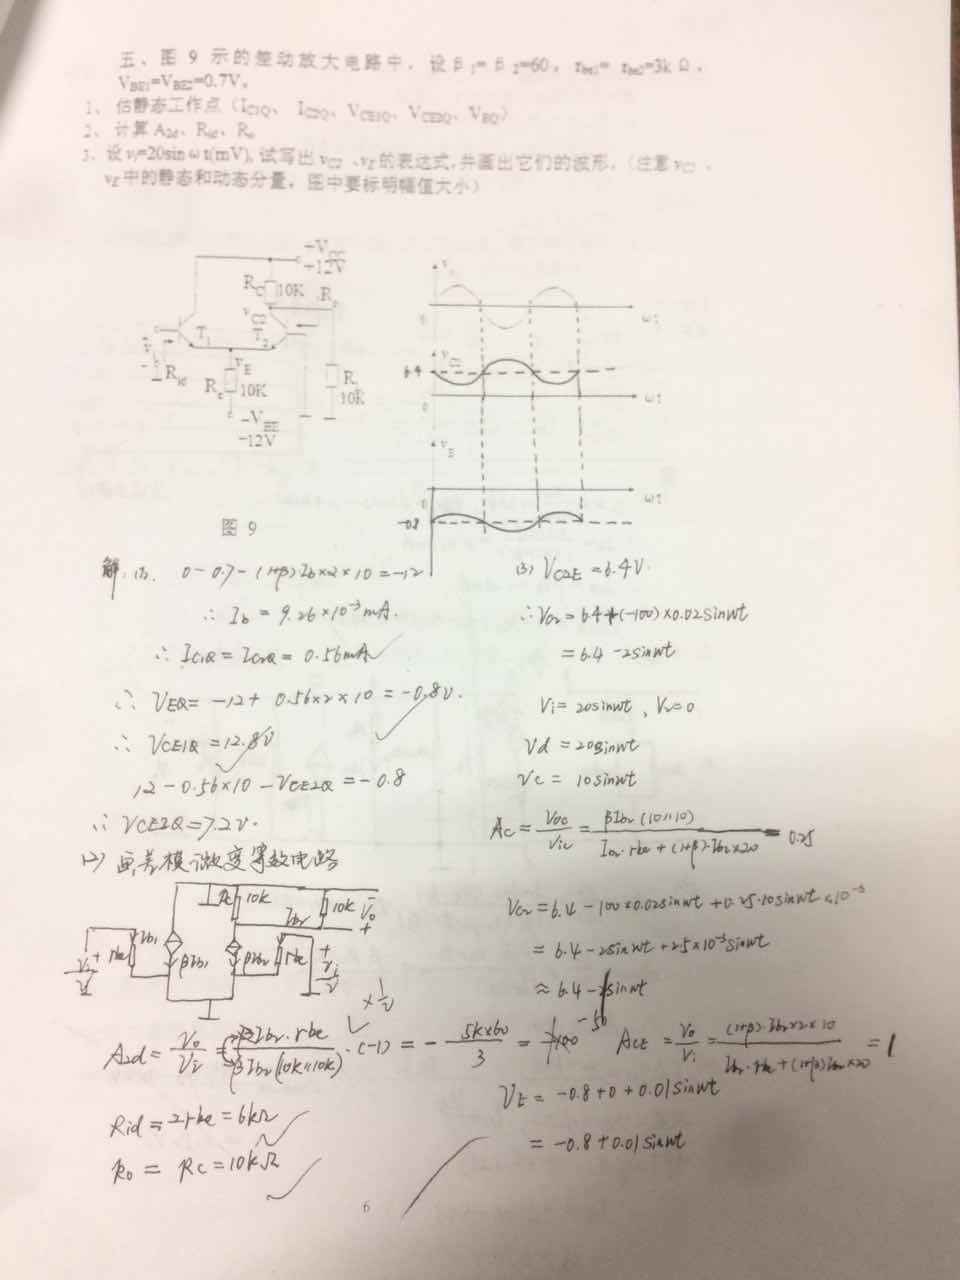 五、图 9 示的差动放大电路中，设β₁=β₂=60，rbe1=rbe2=3kΩ，
VBE1=VBE2=0.7V。
1、估静态工作点（IC1Q、IC2Q、VCE1Q、VCE2Q、VEQ）
2、计算A2d、Rid、Ro
3、设vi=20sinωt(mV),试写出vC2、vE的表达式,并画出它们的波形,（注意vC2、
vE中的静态和动态分量，图中要标明幅值大小）
+12V
RC
10K
Ro
vC2
T1
T2
vi
Rid
vE
Re
10K
-VEE
-12V
RL
10K
0
ωt
vC2
6.4
0
ωt
vE
0
ωt
-0.8
图 9
解:(1). 0-0.7-(1+β)Ib×2×10=-12
∴ Ib = 9.26×10⁻³mA.
∴ IC1Q=IC2Q= 0.56mA
∴ VEQ= -12+ 0.56×2×10=-0.8V.
∴ VCE1Q=12.8V
12-0.56×10-VCE2Q=-0.8
∴ VCE2Q=7.2V.
(2) 画差模微变等效电路
Rc
10k
Ib2
10k
Vo
+
rbe
Ib1
βIb1
βIb2
rbe
×1/2
A2d= Vo/Vi = βIb2·rbe/βIb2(10k//10k) ·(-1) = - 5k×60/3 = -100 -50
Rid=2rbe=6kΩ
Ro = Rc=10kΩ
(3) VC2E=6.4V.
∴Vo2=6.4+(-100)×0.02sinwt
=6.4-2sinwt
Vi=20sinwt, V2=0
Vd=20sinwt
Vc= 10sinwt
Ac= Voc/Vic = βIb2(10//10)/Ib2·rbe+(1+β)·Ib2×20 = 0.25
Vc2=6.4-100×0.02sinwt+0.25·10sinwt×10⁻³
= 6.4-2sinwt+2.5×10⁻³sinwt
≈ 6.4-2sinwt
ACE = Vo/Vi = (1+β)·Ib2×2×10/Ib2·rbe+(1+β)Ib2×20 =1
VE= -0.8+0+0.01sinwt
= -0.8+0.01sinwt
6